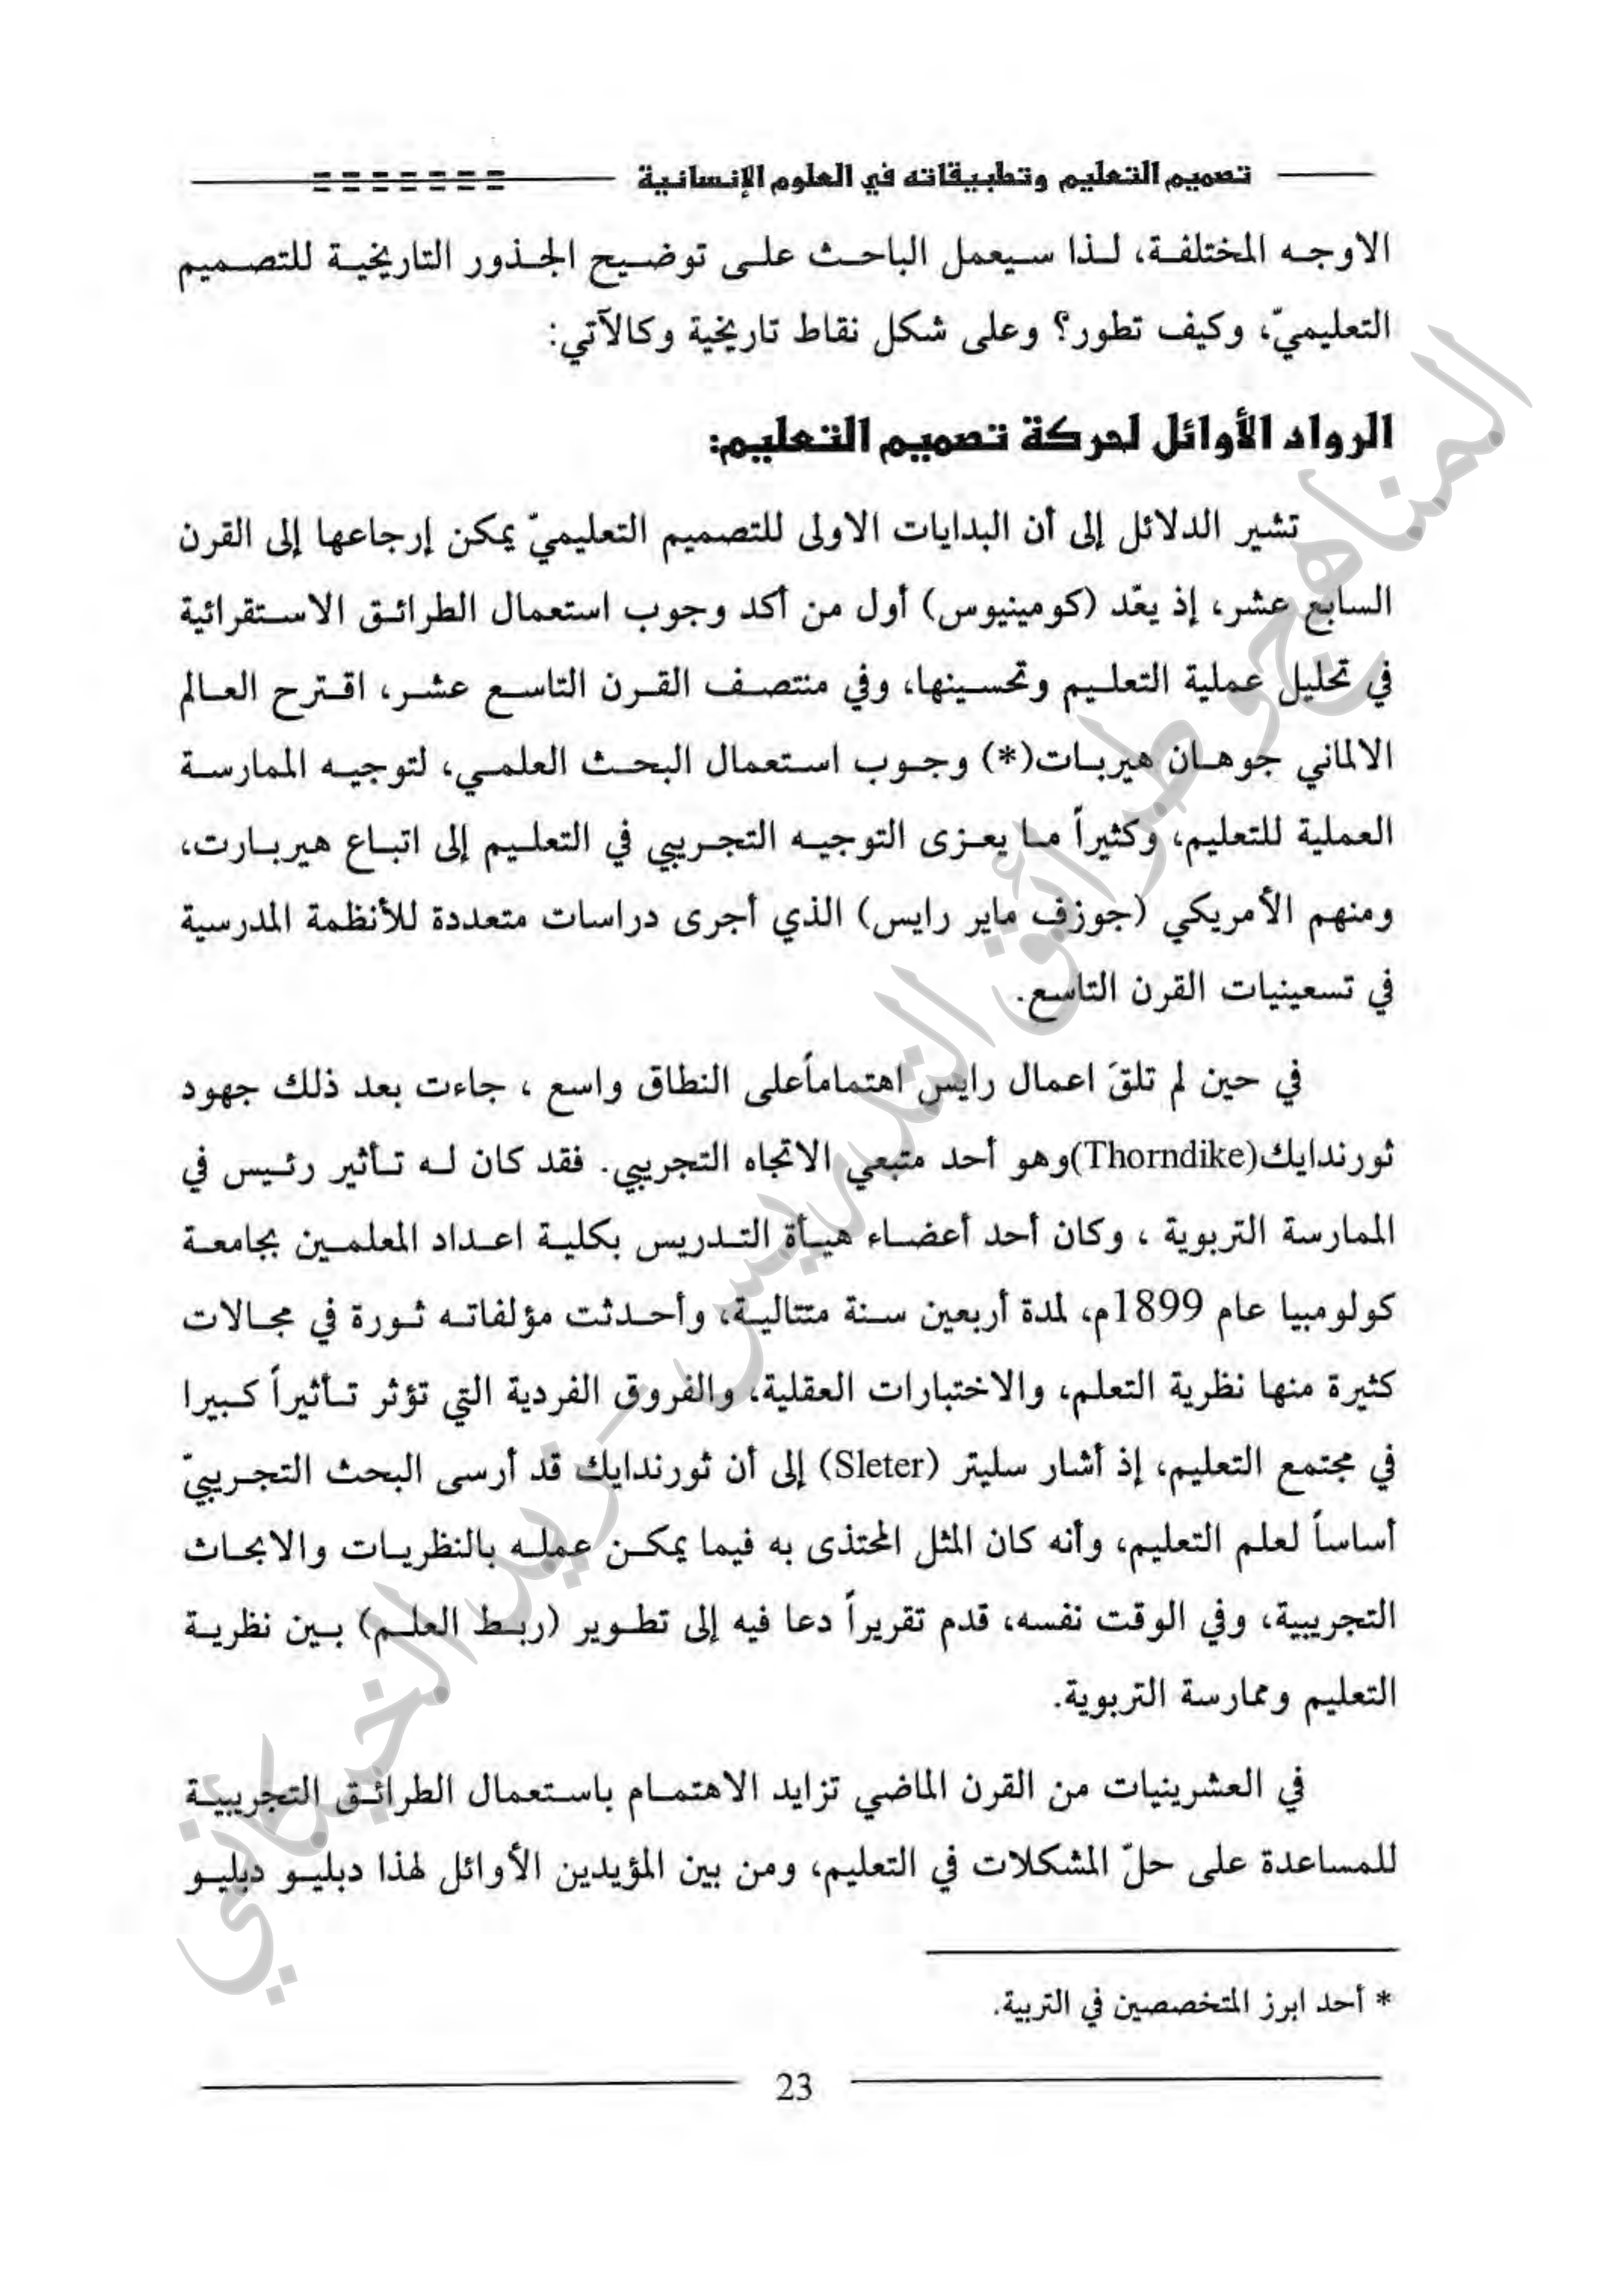 تصميم التعليم وتطبيقاته في العلوم الإنسانية
الاوجه المختلفة، لذا سيعمل الباحث على توضيح الجذور التاريخية للتصميم
التعليميّ، وكيف تطور؟ وعلى شكل نقاط تاريخية وكالآتي:
الرواد الأوائل لحركة تصميم التعليم:
تشير الدلائل إلى أن البدايات الاولى للتصميم التعليميّ يمكن إرجاعها إلى القرن
السابع عشر، إذ يعّد (كومينيوس) أول من أكد وجوب استعمال الطرائق الاستقرائية
في تحليل عملية التعليم وتحسينها، وفي منتصف القرن التاسع عشر، اقترح العالم
الالماني جوهان هيربات(*) وجوب استعمال البحث العلمي، لتوجيه الممارسة
العملية للتعليم، وكثيراً ما يعزى التوجيه التجريبي في التعليم إلى اتباع هيربارت،
ومنهم الأمريكي (جوزف ماير رايس) الذي أجرى دراسات متعددة للأنظمة المدرسية
في تسعينيات القرن التاسع.
في حين لم تلقَ اعمال رايس اهتماماًعلى النطاق واسع ، جاءت بعد ذلك جهود
ثورندايك(Thorndike)وهو أحد متبعي الاتجاه التجريبي. فقد كان له تأثير رئيس في
الممارسة التربوية ، وكان أحد أعضاء هيأة التدريس بكلية اعداد المعلمين بجامعة
كولومبيا عام 1899م، لمدة أربعين سنة متتالية، وأحدثت مؤلفاته ثورة في مجالات
كثيرة منها نظرية التعلم، والاختبارات العقلية، والفروق الفردية التي تؤثر تأثيراً كبيرا
في مجتمع التعليم، إذ أشار سليتر (Sleter) إلى أن ثورندايك قد أرسى البحث التجريبيّ
أساساً لعلم التعليم، وأنه كان المثل المحتذى به فيما يمكن عمله بالنظريات والابحاث
التجريبية، وفي الوقت نفسه، قدم تقريراً دعا فيه إلى تطوير (ربط العلم) بين نظرية
التعليم وممارسة التربوية.
في العشرينيات من القرن الماضي تزايد الاهتمام باستعمال الطرائق التجريبية
للمساعدة على حلّ المشكلات في التعليم، ومن بين المؤيدين الأوائل لهذا دبليو دبليو
* أحد ابرز المتخصصين في التربية.
23
المناهج وطرائق التدريس - زيد الخيكاني